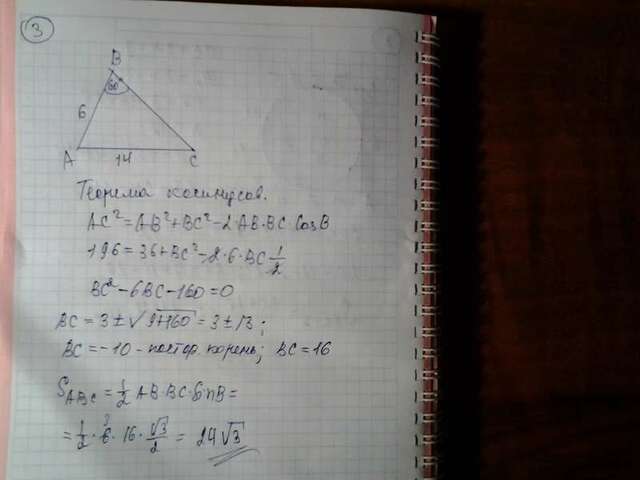 3
B
60
6
A
14
C
Теорема косинусов.
AC² = AB² + BC² - 2·AB·BC·CosB
196 = 36 + BC² - 2·6·BC 1/2
BC² - 6BC - 160 = 0
BC = 3 ± √9+160 = 3 ± 13;
BC = -10 - постор. корень; BC = 16
S_ABC = 1/2 AB·BC·SinB =
= 1/2 · 6 · 16 · √3/2 = 24√3